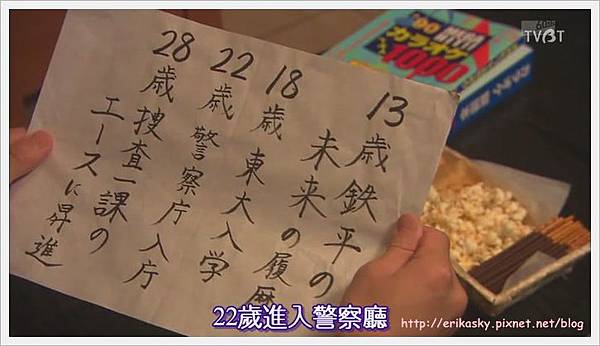 13歳鉄平の
未来の履歴
18歳東大入学
22歳警察庁入庁
28歳捜査一課の
エースに昇進
'90
カラオケ
1000
TVBT
22歲進入警察廳
http://erikasky.pixnet.net/blog